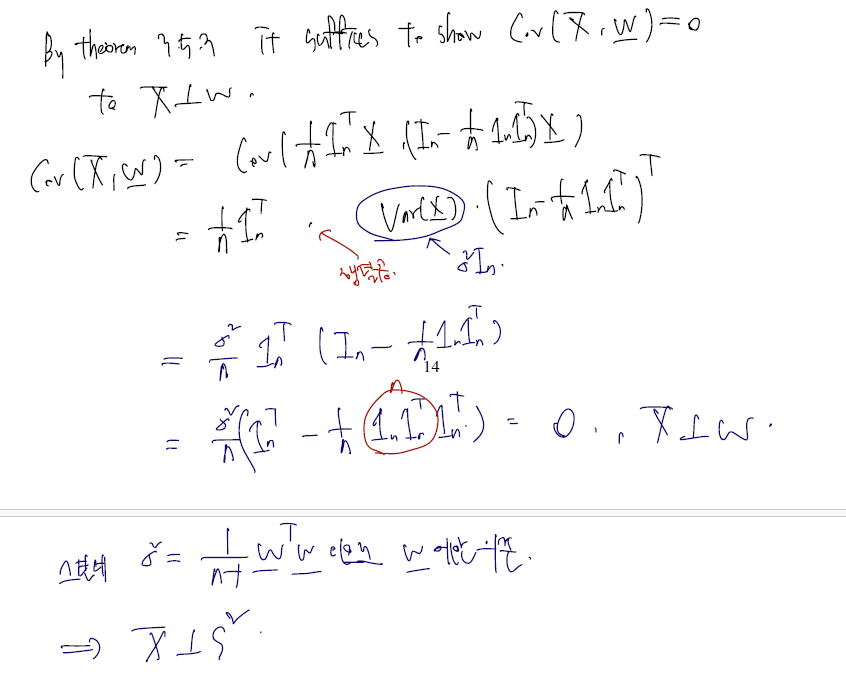 By theorem 3.5.3 it suffices to show Cov(X̄, W) = 0
to X̄ ⊥ W.
Cov(X̄, W) = Cov(1/n 1ₙᵀ X, (Iₙ - 1/n 1ₙ1ₙᵀ) X)
= 1/n 1ₙᵀ · Var(X) · (Iₙ - 1/n 1ₙ1ₙᵀ)ᵀ
σ²Iₙ.
= σ²/n 1ₙᵀ (Iₙ - 1/n 1ₙ1ₙᵀ)
14
n
= σ²/n (1ₙᵀ - 1/n 1ₙ1ₙᵀ 1ₙᵀ) = 0 ., X̄ ⊥ W.
= 1/n-1 WᵀW W
⇒ X̄ ⊥ S².